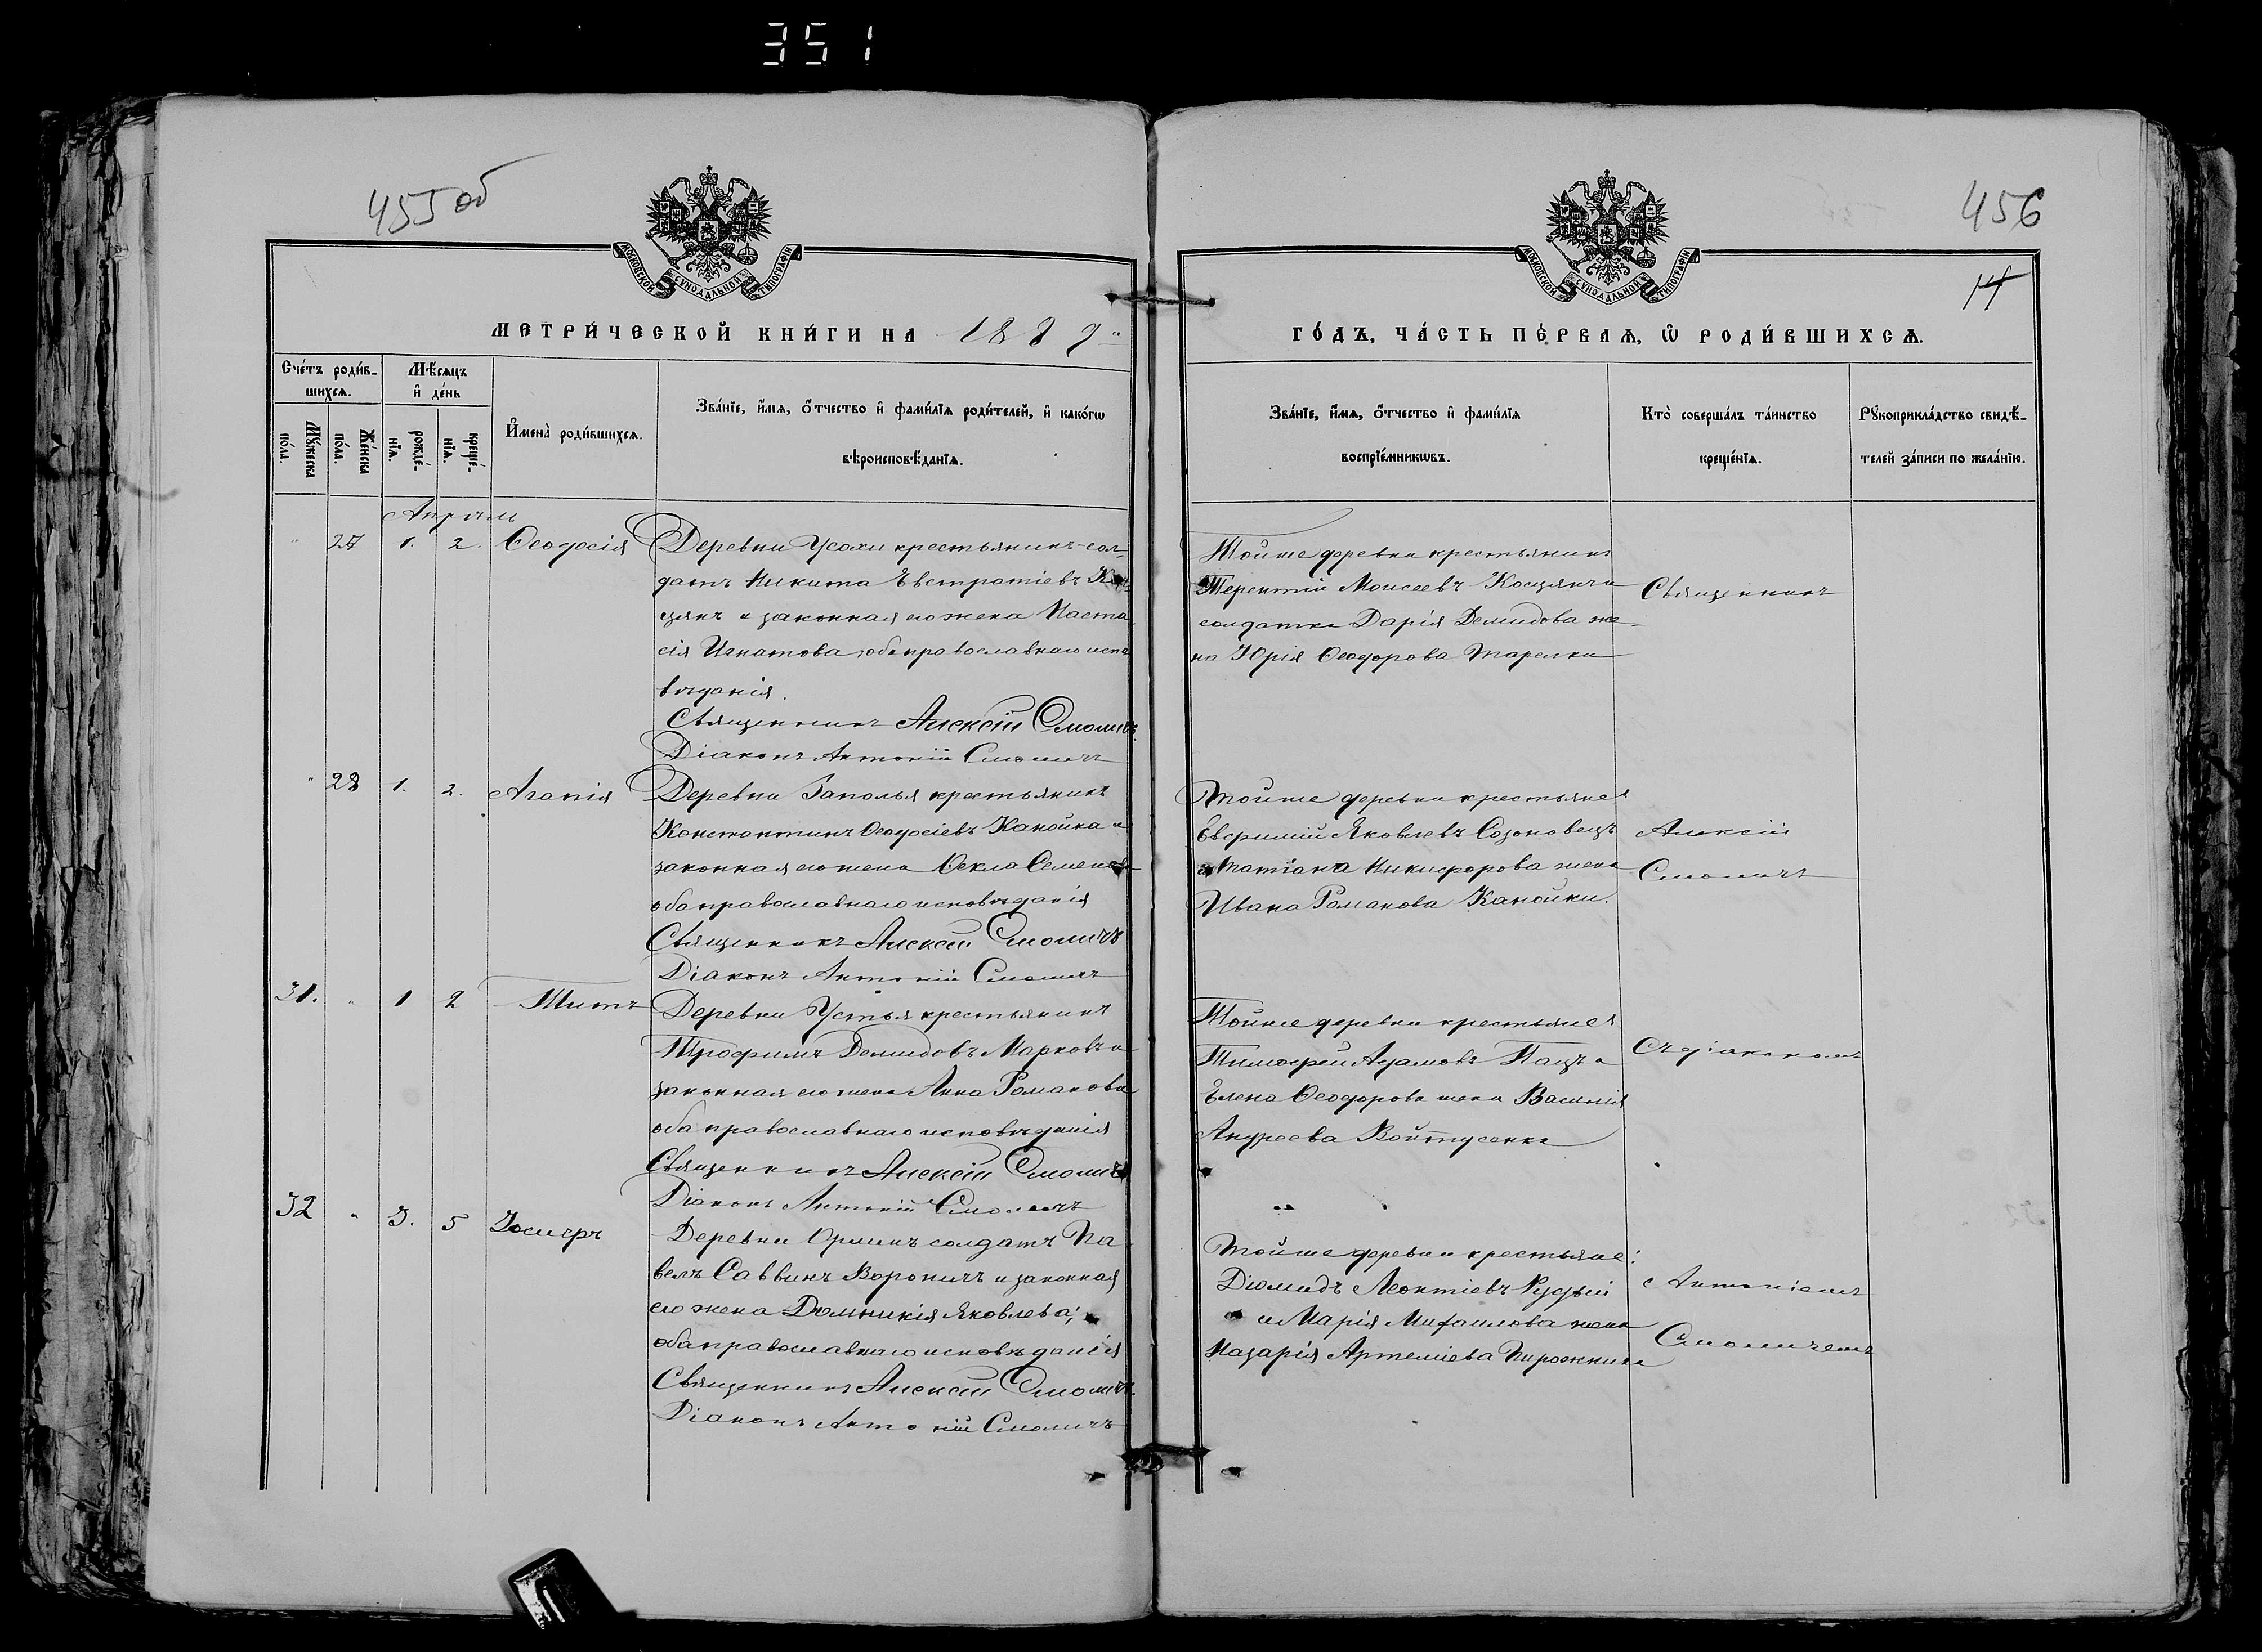 351
455 об
456
14
МОСКОВСКОЙ СУНОДАЛЬНОЙ ТИПОГРАФІИ
МОСКОВСКОЙ СУНОДАЛЬНОЙ ТИПОГРАФІИ
МЕТРИ́ЧЕСКОЙ КНИ́ГИ НА 1889
ГО́ДЪ, ЧА́СТЬ ПЕ́РВАѦ, Ѡ҆ РОДИ́ВШИХСѦ.
Сче́тъ роди́в-
шихсѧ.
Мꙋ́жеска
по́ла.
Же́нска
по́ла.
Мѣ́сѧцъ
и҆ де́нь
рожде́-
нїѧ.
креще́-
нїѧ.
И҆мена̀ роди́вшихсѧ.
Зва́нїе, и҆́мѧ, ѻ҆́тчество и҆ фами́лїѧ роди́телей, и҆ како́гѡ
вѣроисповѣ́данїѧ.
Зва́нїе, и҆́мѧ, ѻ҆́тчество и҆ фами́лїѧ
воспрїе́мникѡвъ.
Кто̀ соверша́лъ та́инство
креще́нїѧ.
Рꙋкоприкла́дство свидѣ́-
телей за́писи по жела́нїю.
Апрѣль
" 27 1. 2. Ѳеодосія
Деревни Усохи крестьянинъ-сол-
датъ Никита Евстратіевъ
и законная его жена Наста-
сія Игнатова, оба православнаго испо-
вѣданія.
Священникъ Алексій Смоличъ
Діаконъ Антоній Смоличъ
Тойже деревни крестьянинъ
Терентій Моисеевъ Косцянъ и
солдатка Дарія Демидова же-
на Юрія Ѳеодорова Тарелки
Священникъ
" 28 1. 2. Агапія
Деревни Заполья крестьянинъ
Константинъ Ѳеодосіевъ Канойка и
законная его жена Ѳекла Семенова
оба православнаго исповѣданія
Священникъ Алексій Смоличъ
Діаконъ Антоній Смоличъ
Тойже деревни крестьяне:
Евфимій Яковлевъ Созоновецъ
и Татіана Никифорова жена
Ивана Романова Канойки.
Алексій
Смоличъ
31. " 1 2 Титъ
Деревни Устья крестьянинъ
Трофимъ Демидовъ Марковъ и
законная его жена Анна Романова
оба православнаго исповѣданія
Священникъ Алексій Смоличъ
Діаконъ Антоній Смоличъ
Тойже деревни крестьяне:
Тимофей Адамовъ Пацъ и
Елена Ѳеодорова жена Василія
Андреева Войтусенка
Съ діакономъ
32 " 3. 5 Іосифъ
Деревни солдатъ Па-
велъ Саввинъ Вороничъ и законная
его жена Домникія Яковлева;
оба православнаго исповѣданія
Священникъ Алексій Смоличъ.
Діаконъ Антоній Смоличъ
Тойже деревни крестьяне:
Діомидъ Леонтіевъ Рудый
и Марія Михаилова жена
Назарія Артеміева Пирожника
Антоніемъ
Смоличемъ